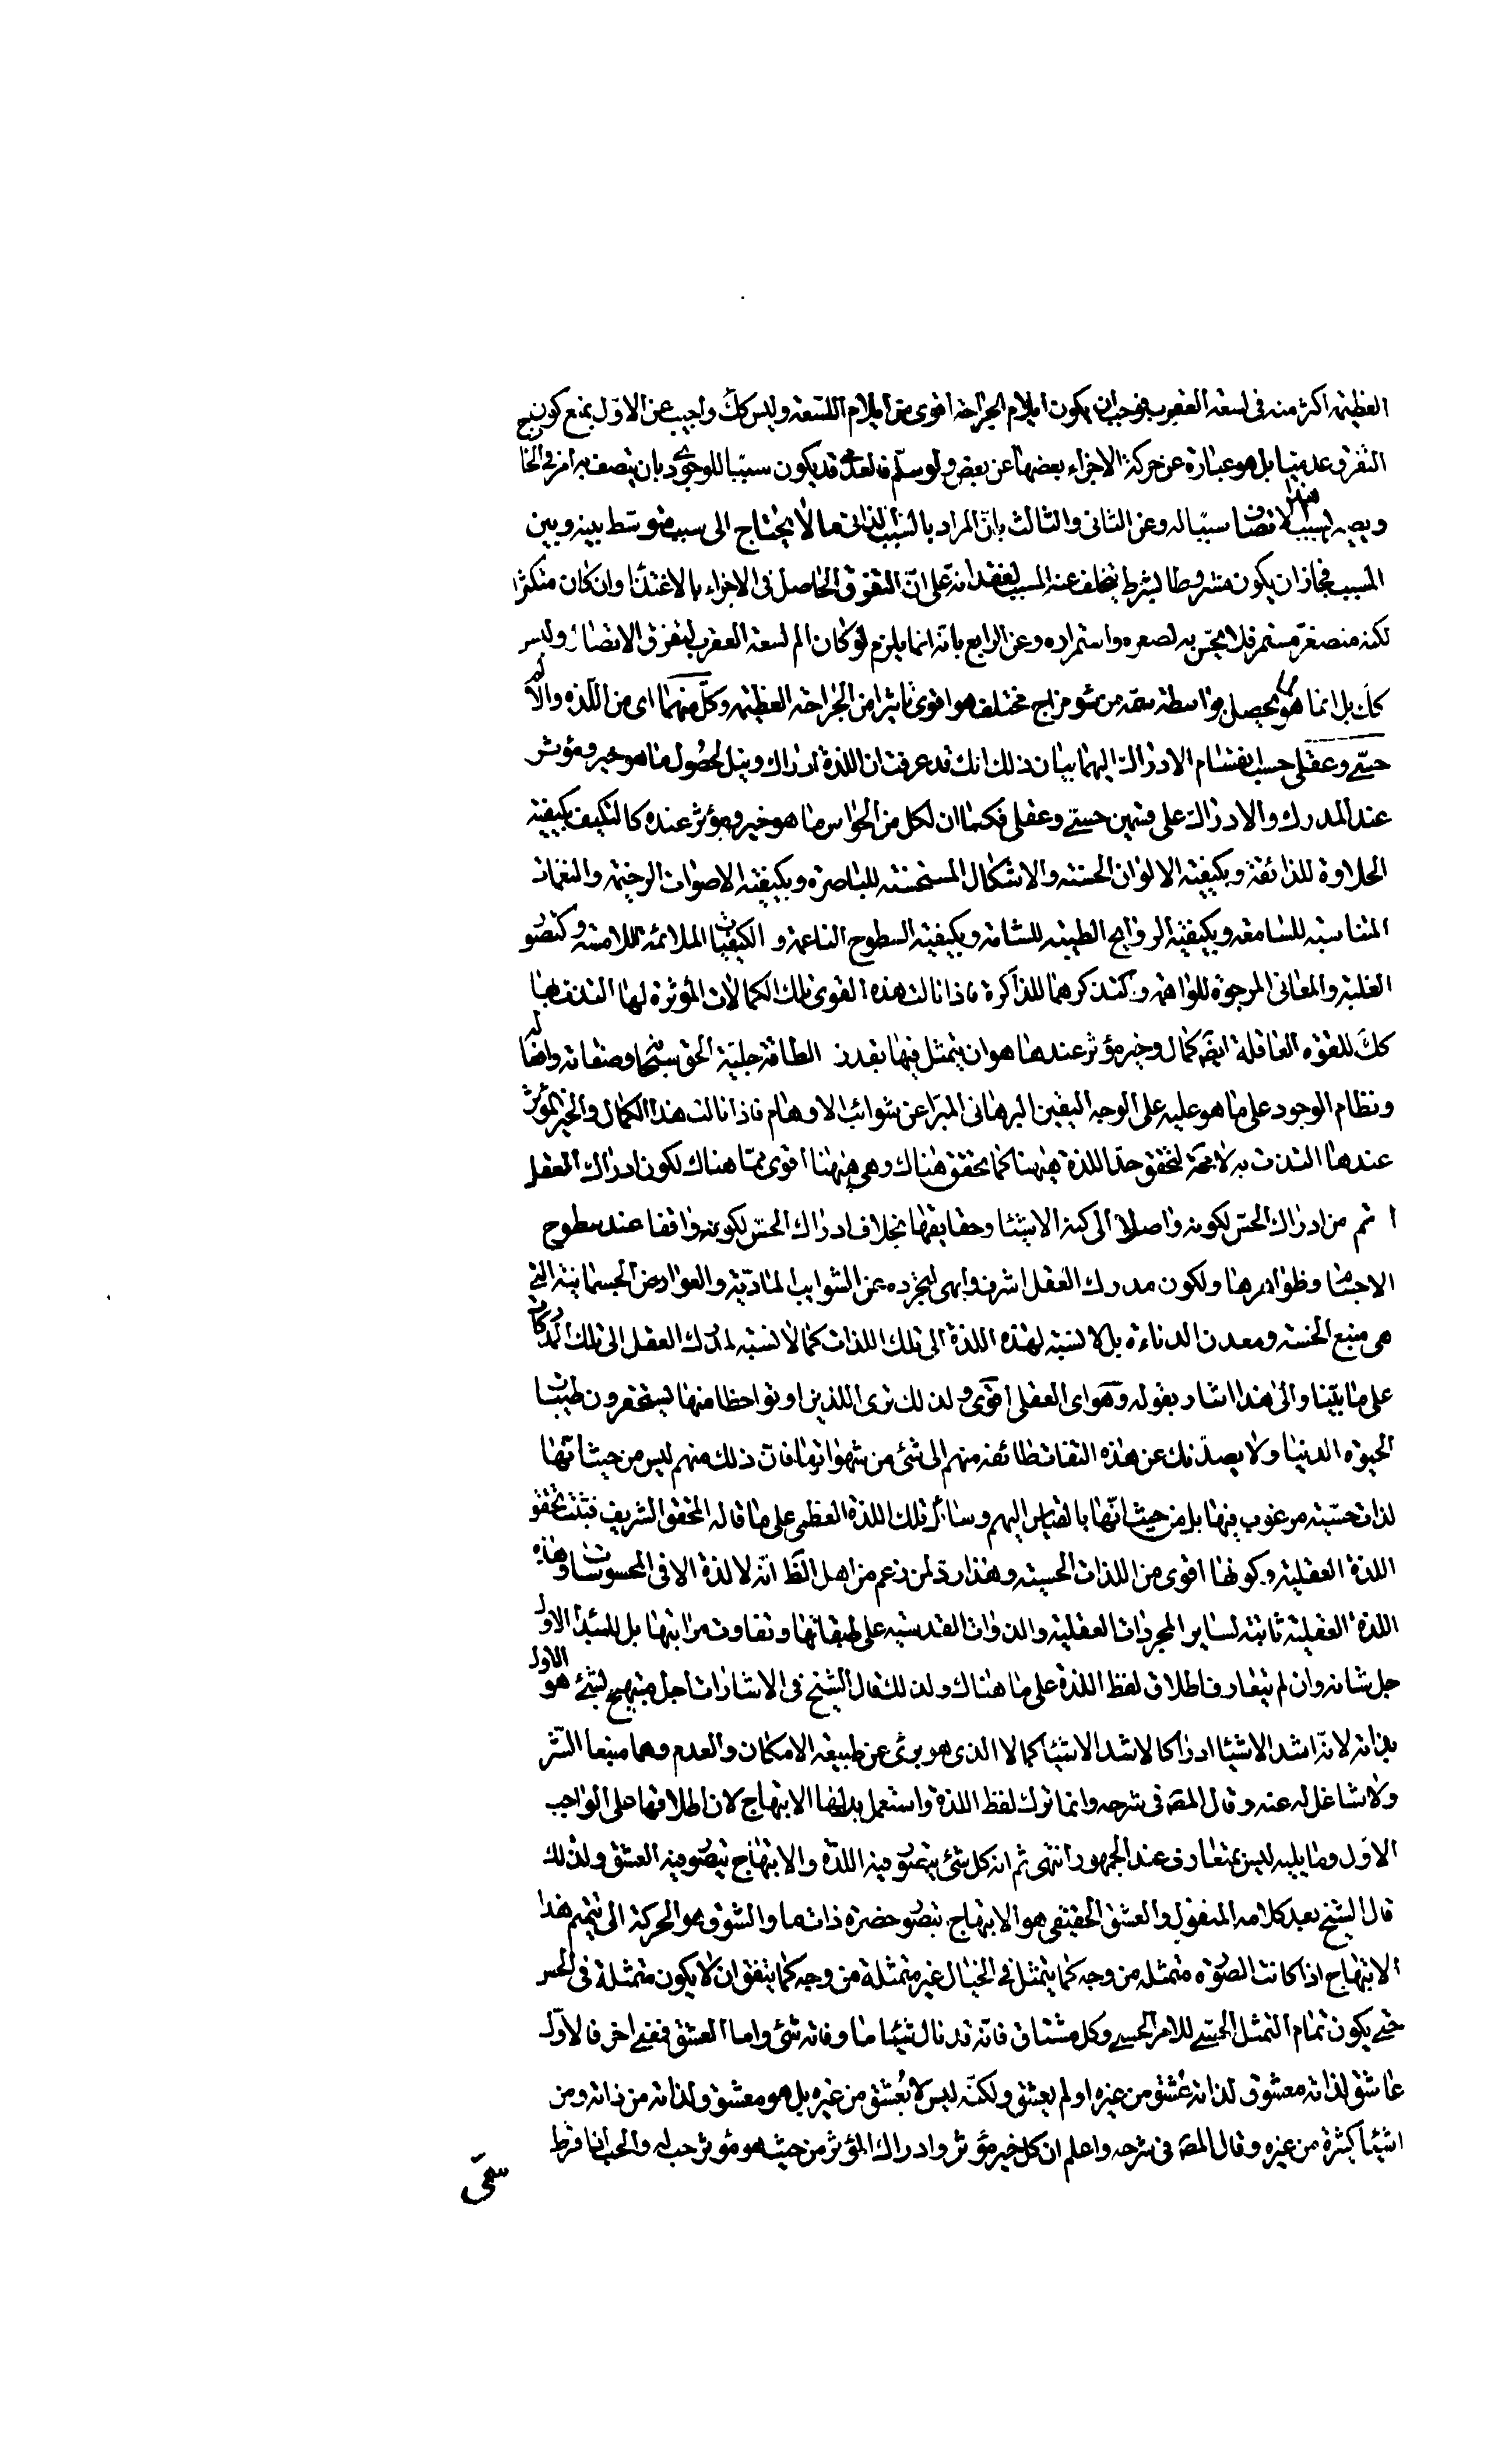 العظيمة اكثر منه فى لسعة العقرب فوجب ان يكون ايلام الجراحة اقوى من ايلام اللسعة وليس كك واجيب عن الاول بمنع كون
التفرق عدميا بل هو عبارة عن حركة الاجزاء بعضها عن بعض ولو سلم فالعدمى قد يكون سببا للوجودى بان يتصف به امر فى الخا
ويصير بسبب هذا الاتصاف سببا له وعن الثانى والثالث بان المراد بالسبب الذاتى ما لا يحتاج الى سبب متوسط بينه وبين
المسبب فجاز ان يكون مشروطا بشرط يتخلف عنه المسبب لفقدانه على ان التفرق الحاصل فى الاجزاء بالاغتذاء وان كان متكثرا
لكنه متصغر مستمر فلا يحس به لصغره واستمراره وعن الرابع بانه انما يلزم لو كان الم لسعة العقرب لتفرق الاتصال وليس
كك بل انما هو يحصل بواسطة سمه من سوء مزاج مختلف هو اقوى تاثيرا من الجراحة العظيمة وكل منهما اى من اللذة والالم
حسى وعقلى حسب انقسام الادراك اليهما بيان ذلك انك قد عرفت ان اللذة ادراك ونيل لحصول ما هو خير ومؤثر
عند المدرك والادراك على قسمين حسى وعقلى فكما ان لكل من الحواس ما هو خير ومؤثر عنده كالتكيف بكيفية
الحلاوة للذائقة وبكيفية الالوان الحسنة والاشكال المستحسنة للباصرة وبكيفية الاصوات الرخيمة والنغمات
المتناسبة للسامعة وبكيفية الروايح الطيبة للشامة وبكيفية السطوح الناعمة و الكيفيات الملائمة للامسة وكتصور
الغلبة والمعانى المرجوة للواهمة وكتذكرهما للذاكرة فاذا نالت هذه القوى تلك الكمالات المؤثرة لها التذت بها
كك للقوة العاقلة ايضا كمال وخير مؤثر عندها هو ان يتمثل فيها بقدر الطاقة جلية الحق سبحانه وصفاته وافعاله
ونظام الوجود على ما هو عليه على الوجه اليقين البرهانى المبرا عن شوائب الاوهام فاذا نالت هذا الكمال والخير المؤثر
عندها التذت به لا محة لتحقق حد اللذة ههنا كما تحقق هناك وهى ههنا اقوى مما هناك لكون ادراك العقل
اتم من ادراك الحس لكونه واصلا الى كنه الاشياء وحقايقها بخلاف ادراك الحس لكونه واقفا عند سطوح
الاجسام وظواهرها ولكون مدرك العقل اشرف وابهى لتجرده عن الشوايب المادية والعوارض الجسمانية التى
هى منبع الخسة ومعدن الدناءة بل لا نسبة لهذه اللذة الى تلك اللذات كما لا نسبة لمدرك العقل الى تلك المدركات
على ما بينا والى هذا اشار بقوله وهو اى العقلى اقوى ولذلك ترى اللذين اوتوا حظا منها يستحقرون طيبات
الحيوة الدنيا ولا يصدنك عن هذه التفات طائفة منهم الى شئ من شهواتها فان ذلك منهم ليس من حيث انها
لذات حسية مرغوب فيها بل من حيث انها بالقياس اليهم وسائل تلك اللذة العظمى على ما قاله المحقق الشريف فثبت تحقق
اللذة العقلية وكونها اقوى من اللذات الحسية وهذا رد لمن زعم من اهل الظ انه لا لذة الا فى المحسوسات وهذه
اللذة العقلية ثابتة لساير المجردات العقلية والذوات القدسية على طبقاتها وتفاوت مراتبها بل للمبدأ الاول
جل شانه وان لم يتعارف اطلاق لفظ اللذة على ما هناك ولذلك قال الشيخ فى الاشارات اجل مبتهج لشئ هو الاول
بذاته لانه اشد الاشياء ادراكا لاشد الاشياء كمالا الذى هو برئ عن طبيعة الامكان والعدم وهما منبعا الشر
ولا شاغل له عنه وقال المصه فى شرحه وانما ترك لفظ اللذة واستعمل بدلها الابتهاج لان اطلاقها على الواجب
الاول وما يليه ليس بمتعارف عند الجمهور انتهى ثم ان كل شئ يتصور فيه اللذة والابتهاج يتصور فيه العشق ولذلك
قال الشيخ بعد كلامه المنقول والعشق الحقيقى هو الابتهاج بتصور حضرة ذات ما والشوق هو الحركة الى تتميم هذا
الابتهاج اذا كانت الصورة متمثلة من وجه كما يتمثل فى الخيال غير متمثلة من وجه كما يتفق ان لا يكون متمثلة فى الحس
حتى يكون تمام التمثل الحسى للامر الحسى وكل مشتاق فانه قد نال شيئا ما وفاته شئ واما العشق فمعنى اخر فالاول
عاشق لذاته معشوق لذاته عشق من غيره او لم يعشق ولكنه ليس لا يعشق من غيره بل هو معشوق لذاته من ذاته ومن
اشياء كثيرة من غيره وقال المصه فى شرحه واعلم ان كل خير مؤثر وادراك المؤثر من حيث هو مؤثر حب له والحب اذا فرط
سمى